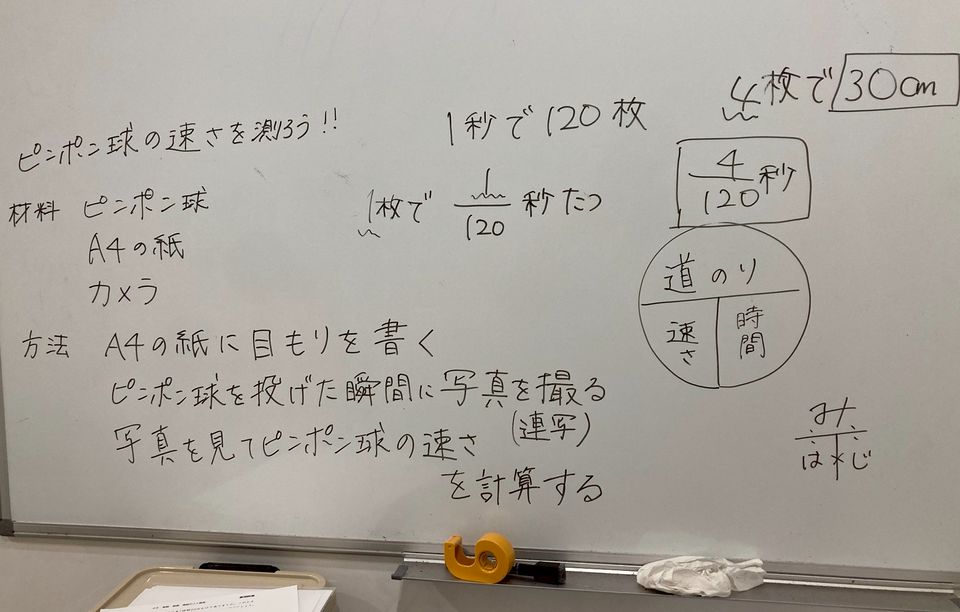 ピンポン球の速さを測ろう!!
材料 ピンポン球
A4の紙
カメラ
方法 A4の紙に目もりを書く
ピンポン球を投げた瞬間に写真を撮る
(連写)
写真を見てピンポン球の速さ
を計算する
1秒で120枚
1枚で 1/120 秒たつ
4枚で 30cm
4/120 秒
道のり
速さ 時間
み
は じ